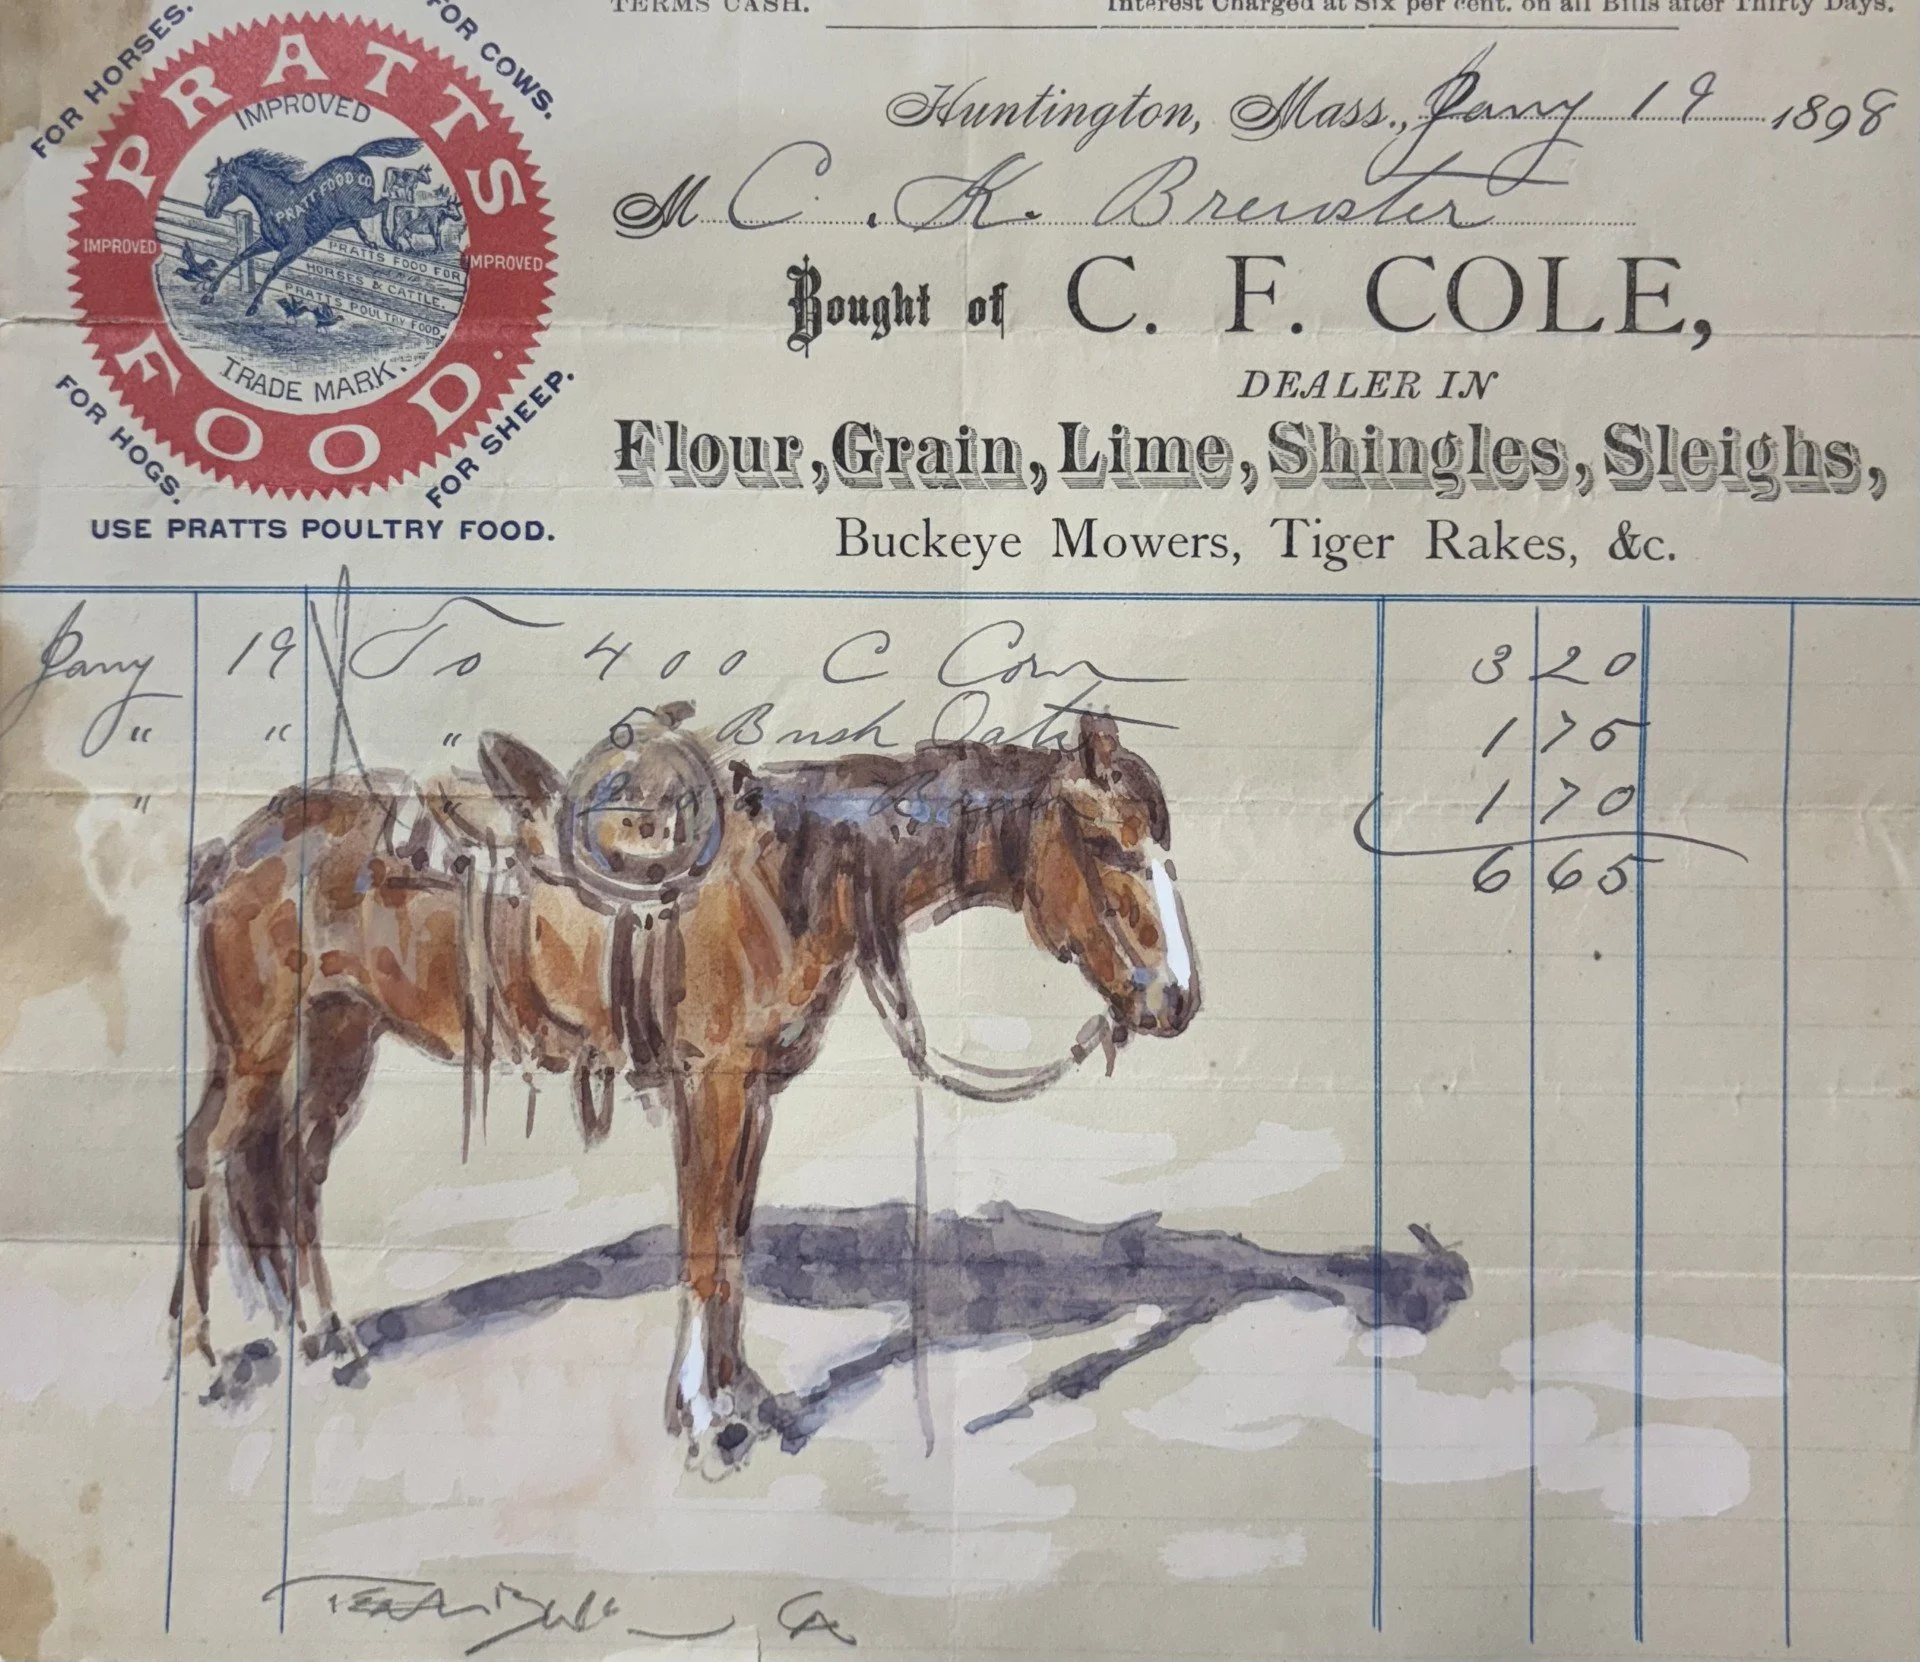 TERMS CASH. Interest Charged at Six per cent. on all Bills after Thirty Days.
FOR HORSES. FOR COWS.
PRATTS FOOD.
IMPROVED
IMPROVED IMPROVED
PRATT FOOD CO.
PRATTS FOOD FOR
HORSES & CATTLE.
PRATTS POULTRY FOOD.
TRADE MARK.
FOR HOGS. FOR SHEEP.
USE PRATTS POULTRY FOOD.
Huntington, Mass., Jany 19 1898
M C. K. Brewster
Bought of C. F. COLE,
DEALER IN
Flour, Grain, Lime, Shingles, Sleighs,
Buckeye Mowers, Tiger Rakes, &c.
Jany 19 To 400 C Corn 3 20
" " " 5 Bush Oats 1 75
" " " 200 Bran 1 70
6 65
CA